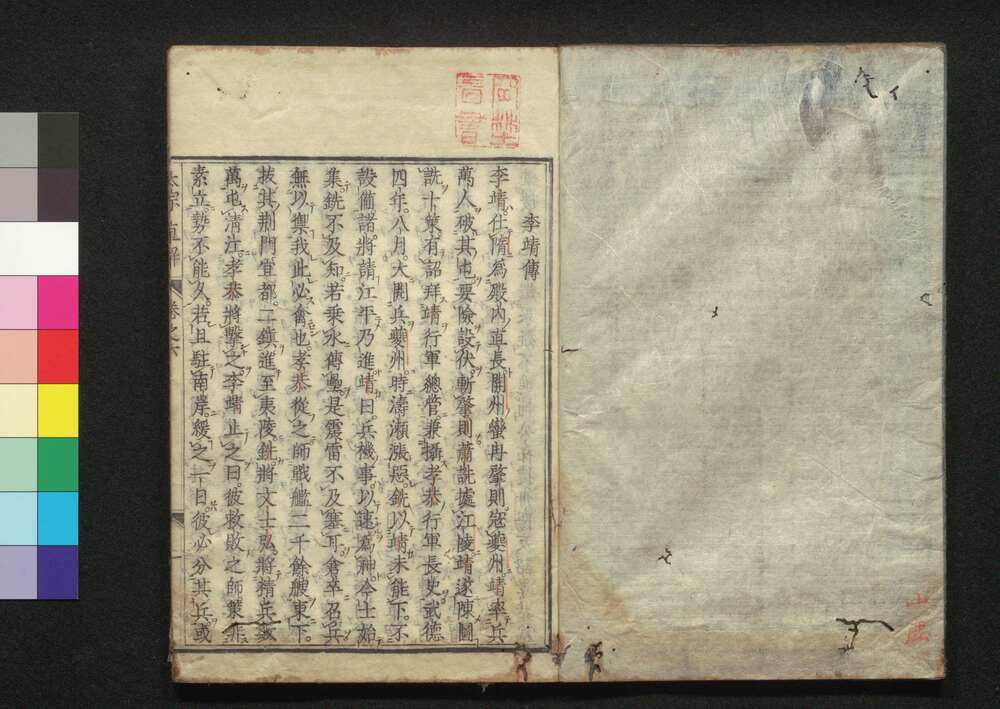 李靖傳
李靖仕隋爲殿內直長開州蠻冉肇則寇夔州靖率兵
萬人破其屯要險設伏斬肇則蕭銑據江陵靖遂陳圖
銑十策有詔拜靖行軍總管兼攝孝恭行軍長史武德
四年八月大閱兵夔州時濤瀨漲惡銑以靖未能下不
設備諸將請江平乃進靖曰兵機事以速爲神今士始
集銑不及知若乘水傅壘是震雷不及塞耳倉卒召兵
無以禦我此必禽也孝恭從之師戰艦二千餘艘東下
拔其荆門宜都二鎮進至夷陵銑將文士弘將精兵數
萬屯淸江孝恭將擊之李靖止之曰彼救敗之師策非
素立勢不能久若且駐南岸緩之一日彼必分其兵或
直解 卷之六